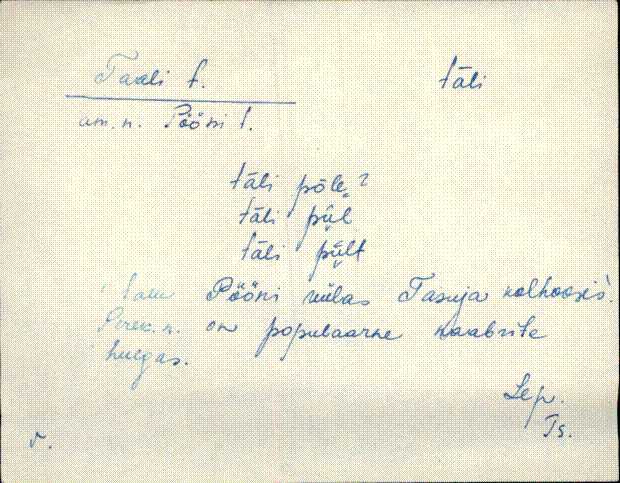 Taali t. täli
am. n. Pööni t.
täli põle?
täli pi̮i̮l
täli pi̮i̮lt
talu Pööni külas Tasuja kolhoosis.
Perek. n. on populaarne naabrite
hulgas.
Lep.
Ts.
v.